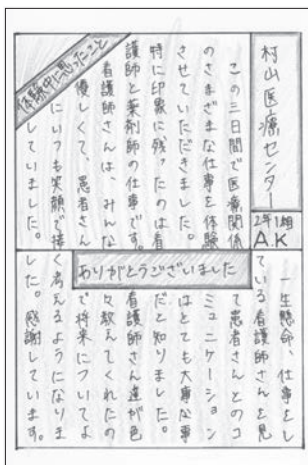 村山医療センター
2年1組
A.K
体験中に思ったこと
この三日間で医療関係
のさまざまな仕事を体験
させていただきました。
特に印象に残ったのは看
護師と薬剤師の仕事です。
看護師さんは、みんな
優しくて、患者さん
にいつも笑顔で接
していました。
ありがとうございました
一生懸命、仕事をし
ている看護師さんを見
て患者さんとのコ
ミュニケーション
はとても大事な事
だと知りました。
看護師さん達が色
々教えてくれたの
で将来についてよ
く考えるようになりま
した。感謝しています。